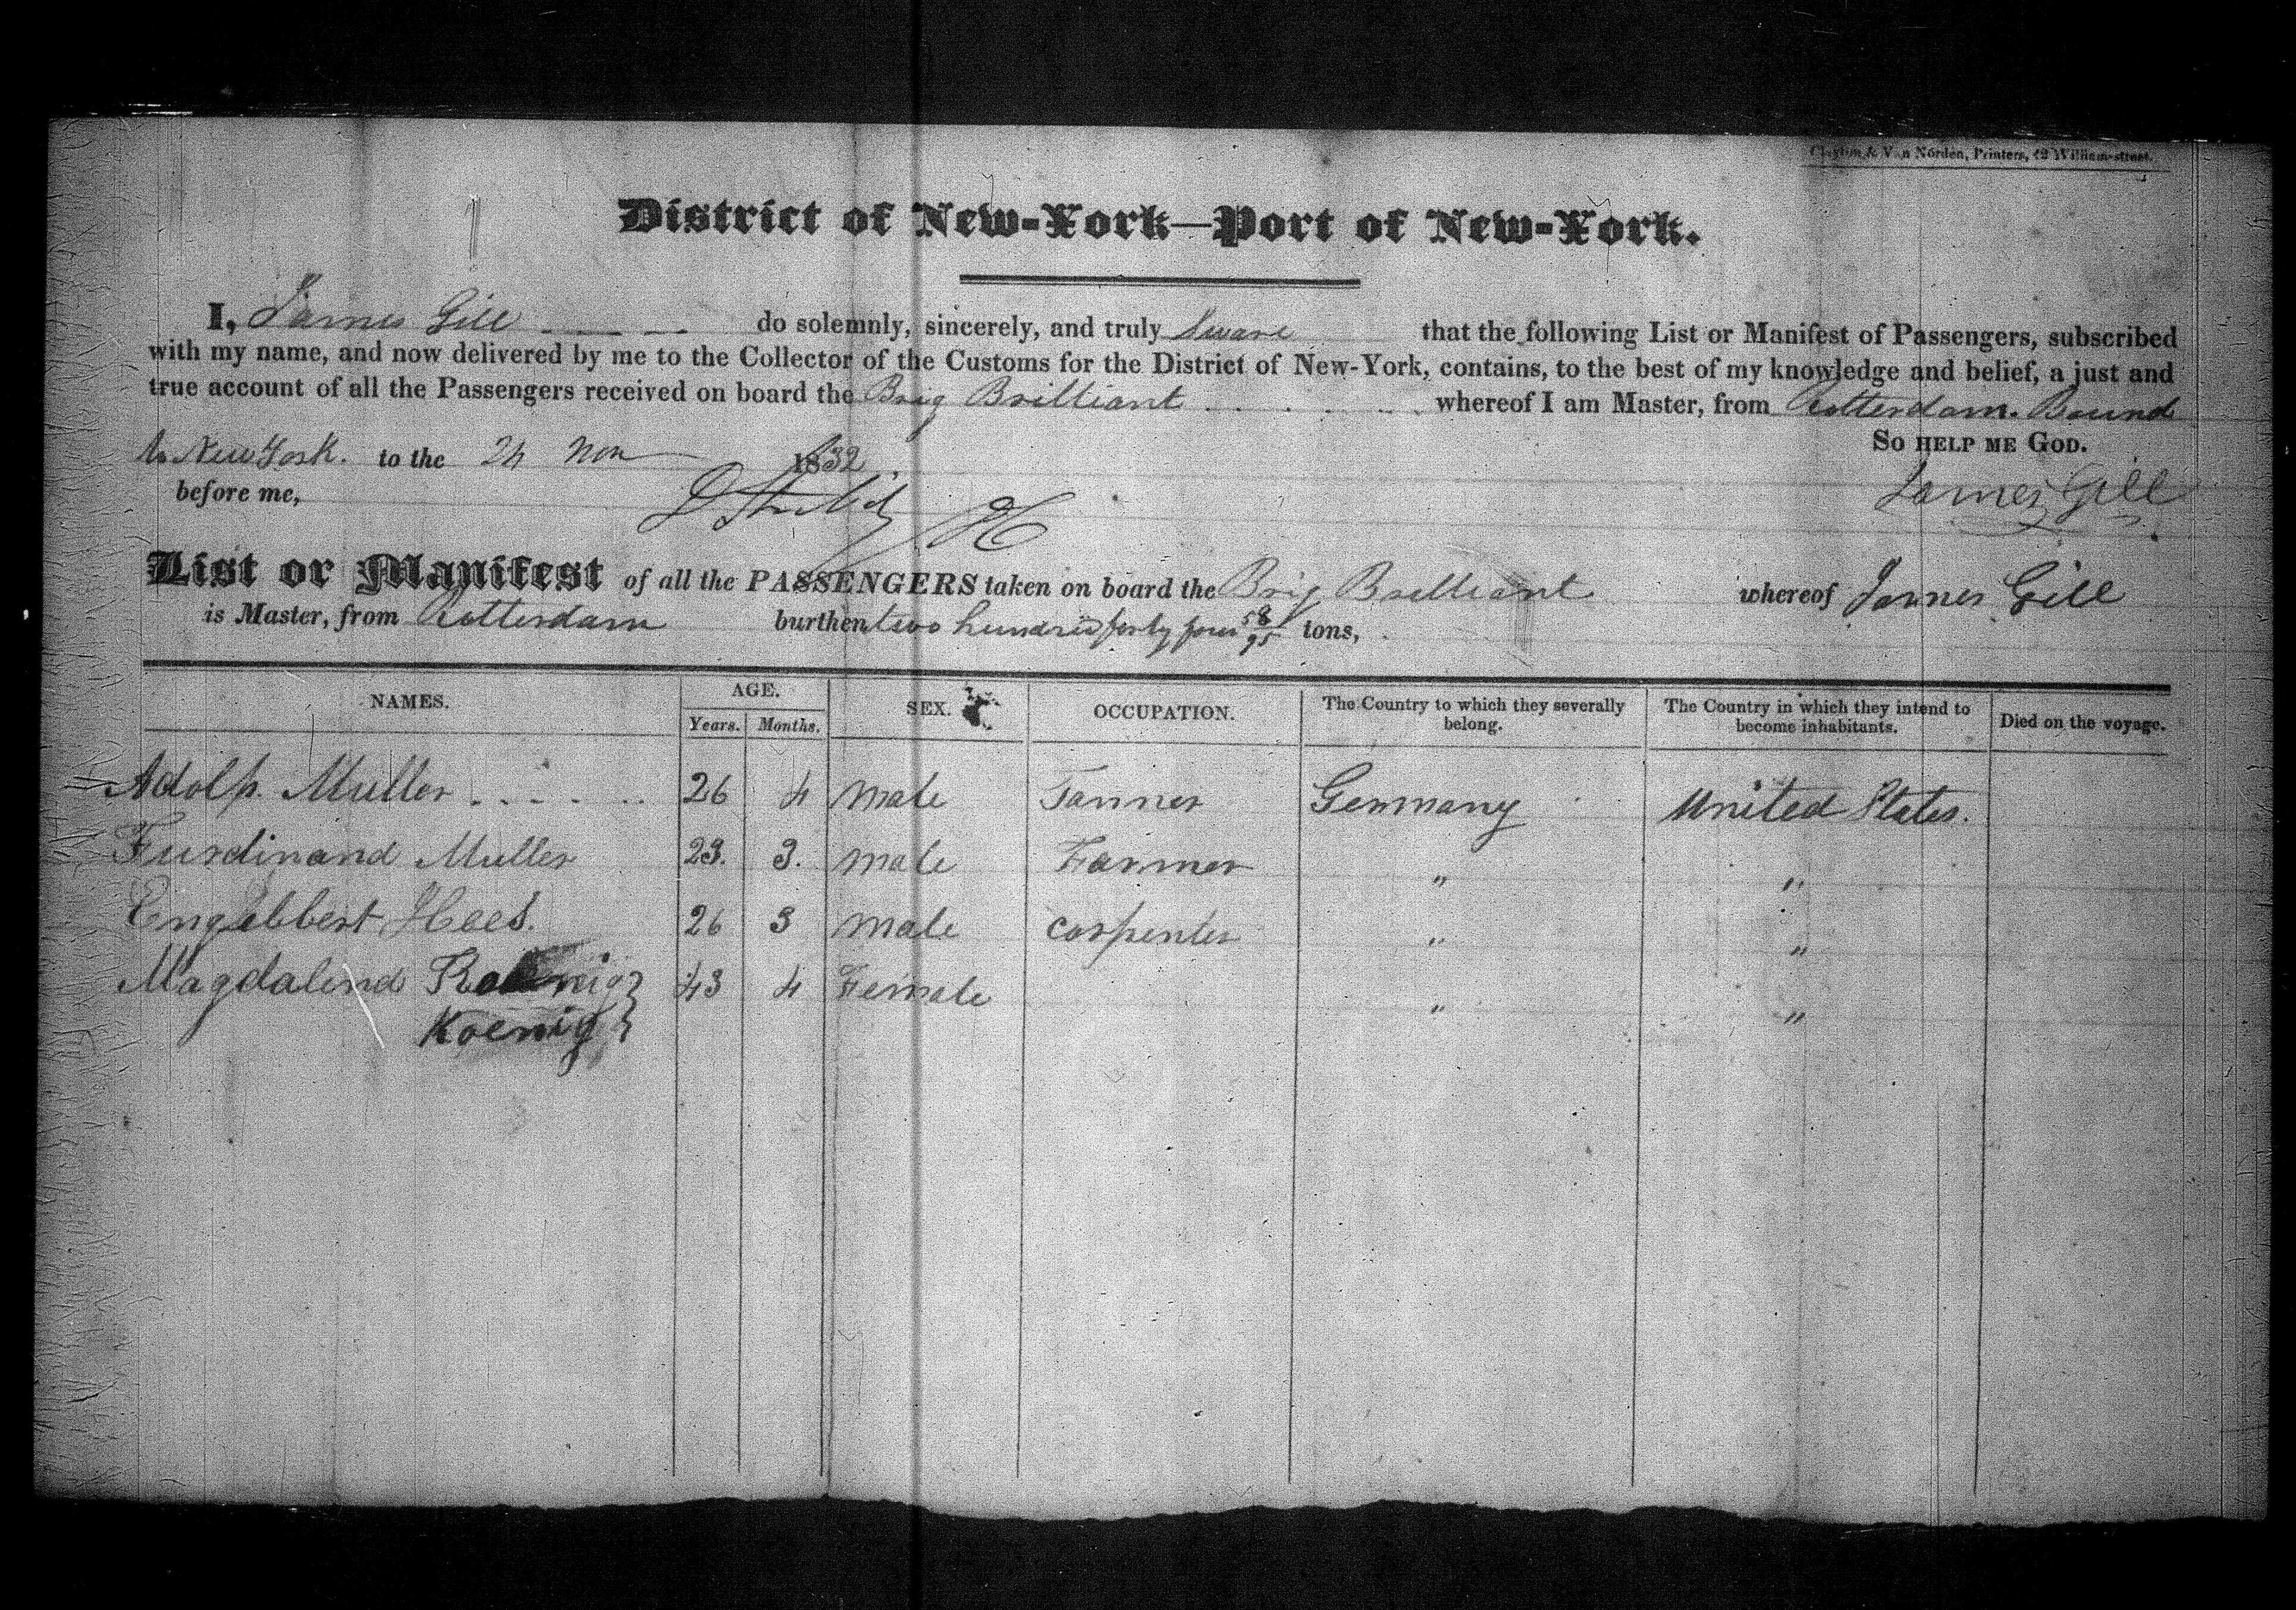 Clayton & Van Norden, Printers, 42 William-street.
District of New-York—Port of New-York.
I, James Gill do solemnly, sincerely, and truly Sware that the following List or Manifest of Passengers, subscribed
with my name, and now delivered by me to the Collector of the Customs for the District of New-York, contains, to the best of my knowledge and belief, a just and
true account of all the Passengers received on board the Brig Brilliant whereof I am Master, from Rotterdam. Bound
to New York. to the 24 Nov 1832
So help me God.
before me,
James Gill
List or Manifest of all the PASSENGERS taken on board the Brig Brilliant whereof James Gill
is Master, from Rotterdam burthen two hundred forty four 58/95 tons,
NAMES. AGE. SEX. OCCUPATION. The Country to which they severally belong. The Country in which they intend to become inhabitants. Died on the voyage.
Years. Months.
Adolp. Muller 26 4 Male Tanner Germany United States.
Furdinand Muller 23. 3. Male Farmer " "
Engelbbert Hees. 26 3 Male Carpenter " "
Magdalena 43 4 Female " "
Koenig